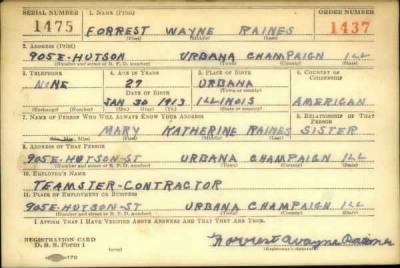 SERIAL NUMBER 1. NAME (Print) ORDER NUMBER
1475 FORREST WAYNE RAINES 1437
(First) (Middle) (Last)
2. ADDRESS (Print)
905E-HUTSON URBANA CHAMPAIGN ILL
(Number and street or R. F. D. number) (Town) (County) (State)
3. TELEPHONE 4. AGE IN YEARS 5. PLACE OF BIRTH 6. COUNTRY OF CITIZENSHIP
NINE 27 URBANA
DATE OF BIRTH (Town or county)
JAN 30 1913 ILLINOIS AMERICAN
(Exchange) (Number) (Mo.) (Day) (Yr.) (State or country)
7. NAME OF PERSON WHO WILL ALWAYS KNOW YOUR ADDRESS 8. RELATIONSHIP OF THAT PERSON
MARY KATHERINE RAINES SISTER
(Mr., Mrs., Miss) (First) (Middle) (Last)
9. ADDRESS OF THAT PERSON
905E-HUTSON-ST URBANA CHAMPAIGN ILL
(Number and street or R. F. D. number) (Town) (County) (State)
10. EMPLOYER'S NAME
TEAMSTER-CONTRACTOR
11. PLACE OF EMPLOYMENT OR BUSINESS
905E-HUTSON-ST URBANA CHAMPAIGN ILL
(Number and street or R. F. D. number) (Town) (County) (State)
I AFFIRM THAT I HAVE VERIFIED ABOVE ANSWERS AND THAT THEY ARE TRUE.
REGISTRATION CARD
D. S. S. Form 1 Forrest Wayne Raines
(Registrant's signature)